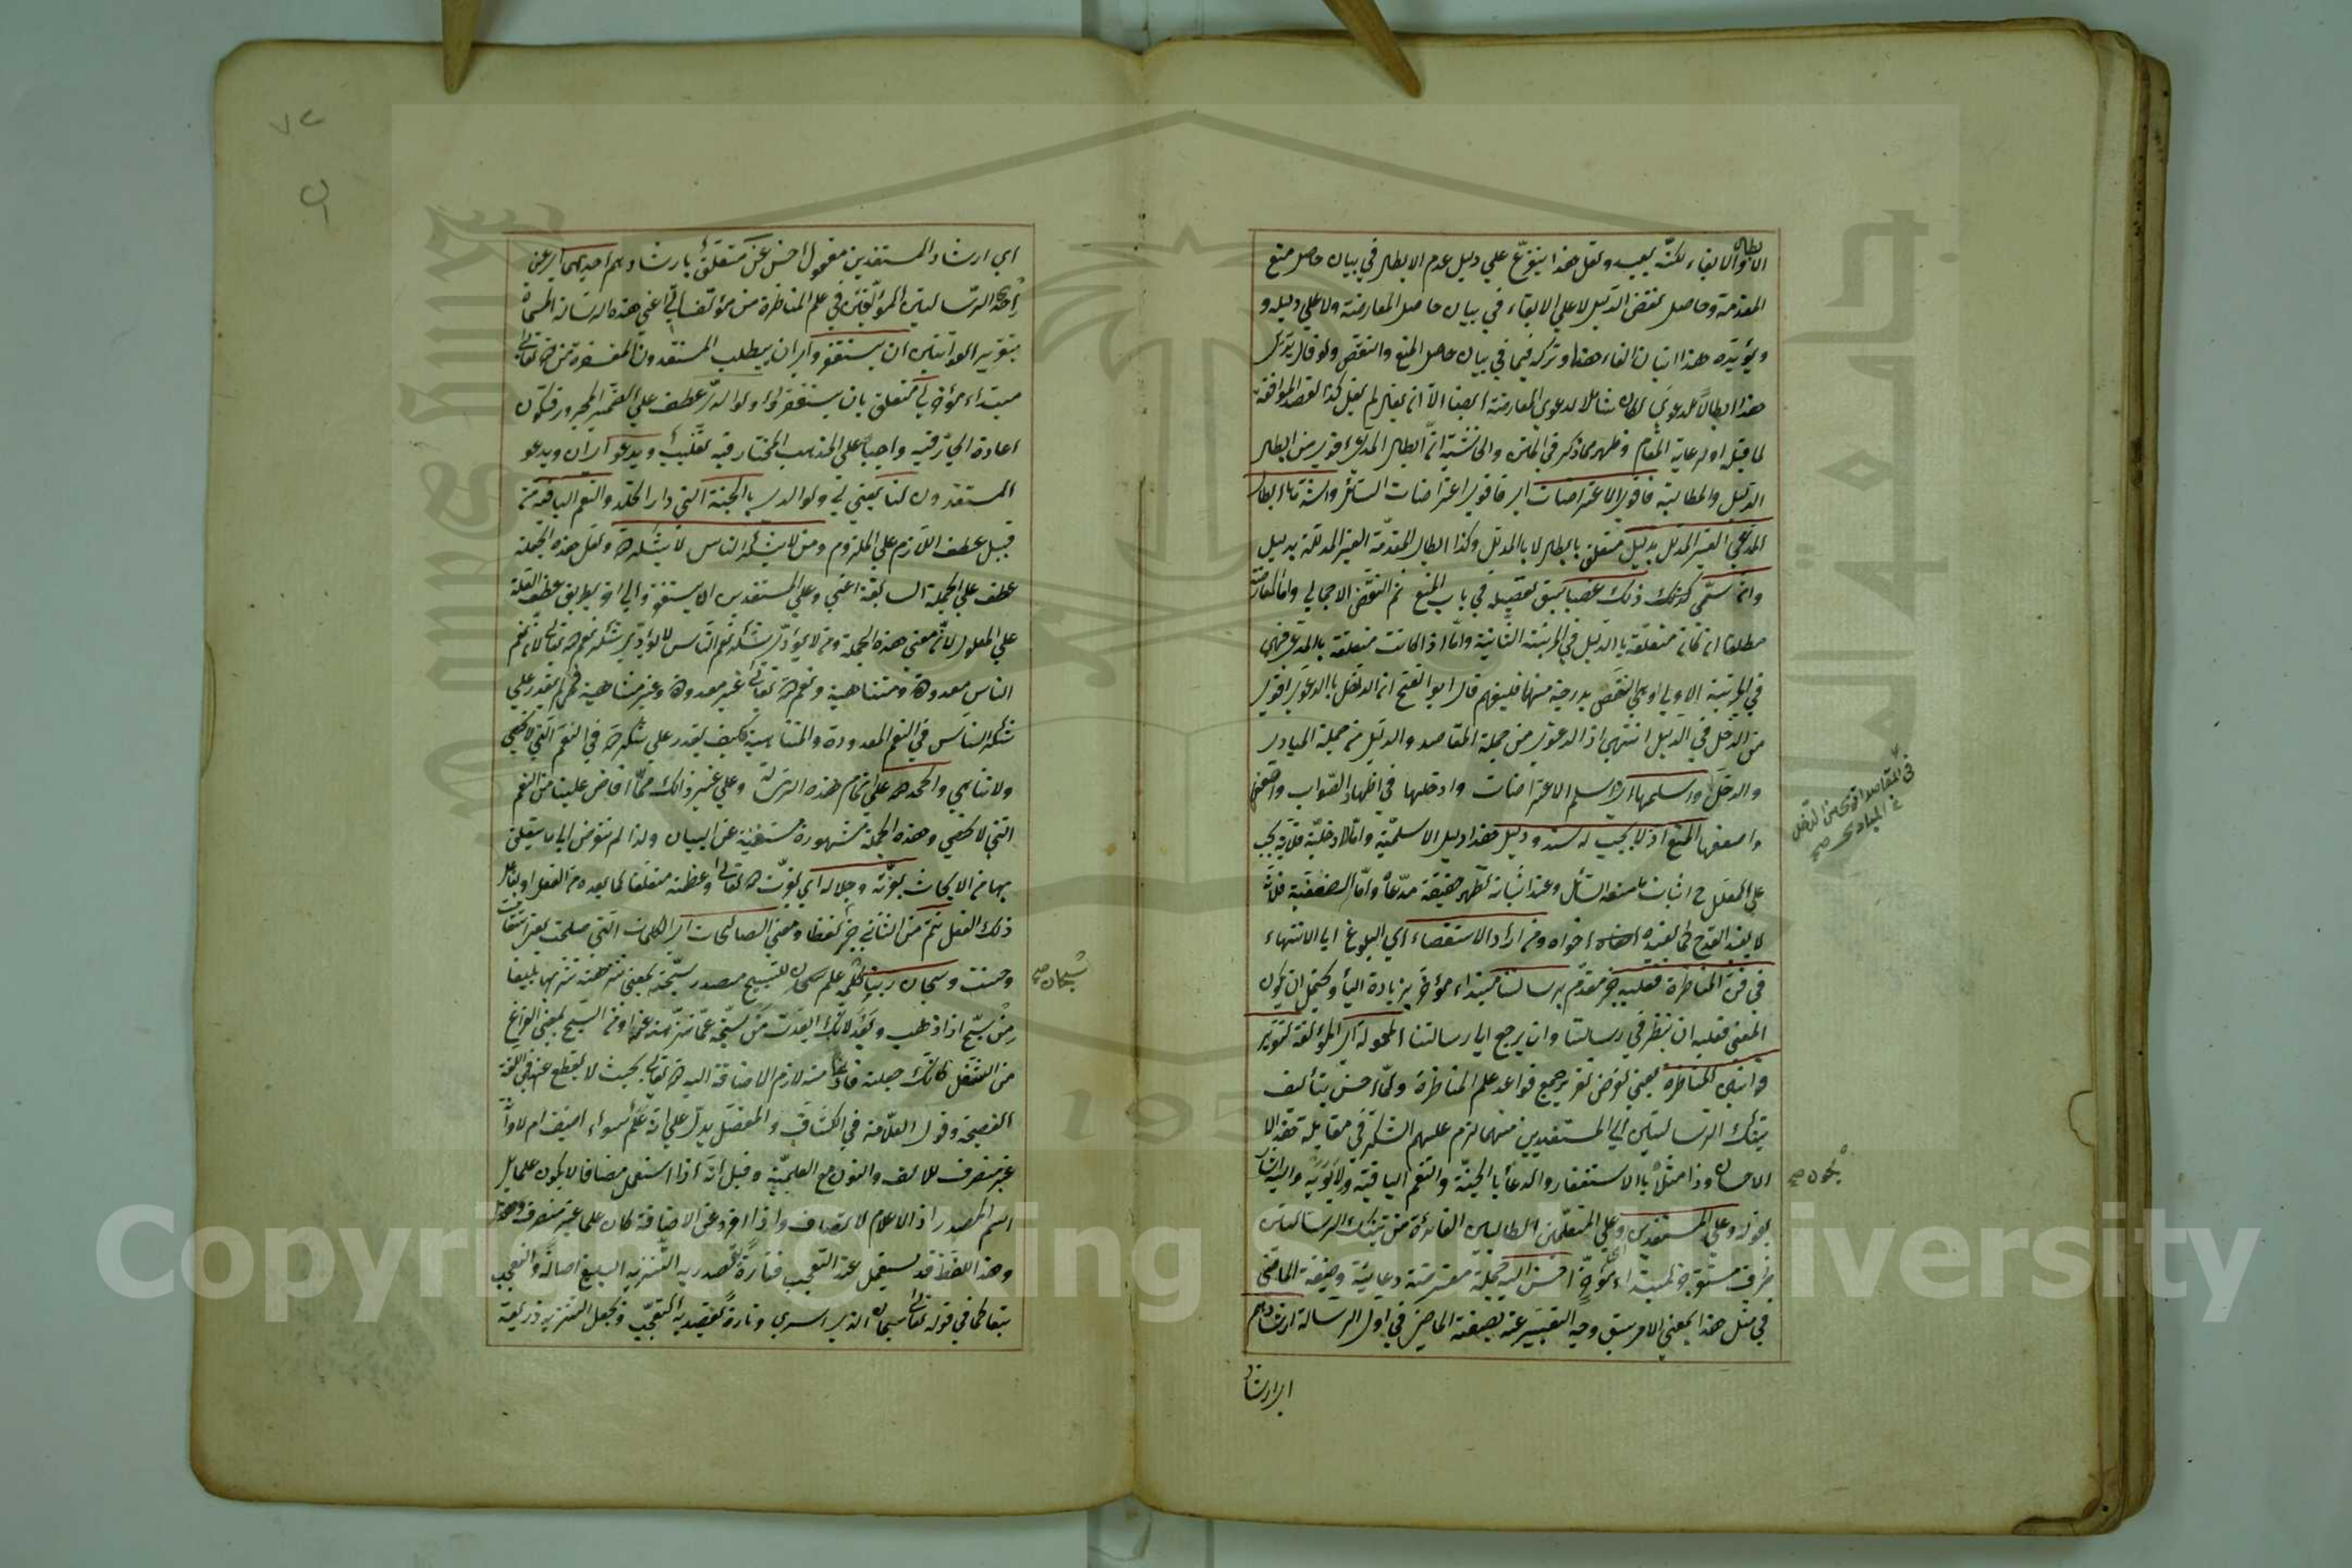 الابطال والابقاء لكنه بعيد ولعل هذا يتفرع علي دليل عدم الابطال في بيان حاصل منع
المقدمة وحاصل نقض الدليل لا علي الابقاء في بيان حاصل المعارضة ولا علي دليله و
ويؤيده هذا اتيان الفاء هنا وتركه فيما في بيان حاصل المنع والنقض ولو قال يدل
هذا ابطالا لدعوي لكان شاملا لدعوي المعارضة ايضا الا انه لم يقل كذا لقصد الموافقة
لما قبله او لرعاية المقام وظهر مما ذكر في المتن والحاشية ان ابطال المدعي اقوي من ابطال
الدليل والمطالبة فاقوي الاعتراضات اي فاقوي اعتراضات السائل واشدها ابطال
المدعي الغير المدلل بدليل متعلق بابطال لا بالمدلل وكذا ابطال المقدمة الغير المدللة بدليل
وان سمي ذلك غصبا سبق تفصيله في باب المنع ثم النقض الاجمالي واما المعارضة
مطلقا ان كانت متعلقة بالدليل في المرتبة الثانية واما اذا كانت متعلقة بالمدعي فهي
في المرتبة الاولي او هي انقص بدرجة منها فليفهم قال ابو الفتح ان الدخل بالدعوي اقوي
من الدخل في الدليل انتهي اذ الدعوي من جملة المقاصد والدليل من جملة المبادي
والدخل واسلمها اي اسلم الاعتراضات وادخلها في اظهار الصواب واضعف
واضعفها المنع اذ لا يجب له سند ودليل هذا دليل الاسلمية واما الادخلية فلانه يجب
علي المعلل ح اثبات ما منعه السائل وعند اثباته تظهر حقيقة مدعاه واما الاضعفية فلانه
لا يفيد القدح كما يفيده اخواه ومن اراد الاستقصاء اي البلوغ الي الانتهاء
في فن المناظرة فعليه خبر مقدم برسالتنا مبتداء مؤخر بزيادة الباء ويحتمل ان يكون
المعني فعليه ان ينظر في رسالتنا وان يرجع الي رسالتنا المعمولة اي المؤلفة لتقرير
قوانين المناظرة يعني لغرض تقرير جميع قواعد علم المناظرة ولما احسن بتأليف
تينك الرسالتين الي المستفيدين منهما لزم عليهم الشكر في مقابلة هذا الا
الاحسان وذا مثل بالاستغفار والدعاء بالجنة والنعم الباقية ولابويه واليه اشار
بقوله وعلي المستفيدين وعلي المتعلمين الطالبين الفائدة من تينك الرسالتين
ظرف مستقر خبر لمبتداء مؤخر احسن اليهم جملة معترضة دعائية وصيغة الماضي
في مثل هذا بمعني الامر سبق وجه التعبير عنه بصيغة الماضي في اول الرسالة ارشادهم
اي ارشاد
في المقاصد اقوي من الدخل
في المبادي صح
يكون صح
اي ارشاد المستفيدين مفعول احسن عن متعلق بارشادهم احديهما اي عن
احدي الرسالتين المؤلفتين في علم المناظرة من مؤلفاتي اعني هذه الرسالة المسماة
بتقرير القوانين ان يستغفروا اي ان يطلب المستفيدون المغفرة من الله تعالي
مبتداء مؤخر لي متعلق بان يستغفروا ولوالدي عطف علي الضمير المجرور فيكون
اعادة الجار فيه واجبا علي المذهب المختار فيه تغليب ويدعوا اي ان ويدعو
المستفيدون لنا يعني لي ولوالدي بالجنة التي دار الخلد والنعم الباقية من
قبيل عطف اللازم علي الملزوم ومن لا يشكر الناس لا يشكر الله ولعل هذه الجملة
عطف علي الجملة السابقة اعني وعلي المستفيدين ان يستغفروا لي الخ بطريق عطف العلة
علي المعلول لانه معني هذه الجملة ومن لا يؤد شكر نعم الناس لا يؤدي شكر نعم الله تعالي لان نعم
الناس معدودة ومتناهية ونعم الله تعالي غير معدودة وغير متناهية فمن لم يقدر علي
شكر الناس في النعم المعدودة والمتناهية فكيف يقدر علي شكر الله في النعم التي لا تحصي
ولا تناهي والحمد لله علي اتمام هذه الرسالة وعلي غير ذلك مما افاض علينا من النعم
التي لا تحصي وهذه الجملة مشهورة مستغنية عن البيان ولذا لم نتعرض الي ما يتعلق
بها من الابحاث بعزته وجلاله اي بعزت الله تعالي وعظمته متعلقا لما بعده من الفعل او بفاعل
ذلك الفعل تتم من الثاني خبر لفظا ومعني الصالحات اي الكلمات التي صلحت
وحسنت وسبحان ربنا كلمة علم للتسبيح مصدر سبحته بمعني نزهته تنزيها بليغا
من سبح اذا ذهب وبعد لانك ابعدت من سبحته عما نزهته عنه او من السبح بمعني الفراغ
من الشغل كانك جعلته فارغا منه لازم الاضافة اليه الله تعالي بحيث لا يقطع عنها في اللغة
الفصيحة وقول العلامة في الكشاف والمفصل يدل علي انه علم سواء اضيف ام لا وانه
غير منصرف للالف والنون مع العلمية وقيل انه اذا استعمل مضافا لا يكون علما بل
اسم المصدر اذ الاعلام لا تضاف واذا افرد عن الاضافة كان علما غير منصرف
وهذا اللفظ قد يستعمل عند التعجب فتارة يقصد به التنزيه البليغ اصالة والتعجب
تبعا كما في قوله تعالي سبحان الذي اسري وتارة يقصد به التعجب ويجعل التنزيه ذريعة
سبحان صح
Copyright © King Saud University
1957